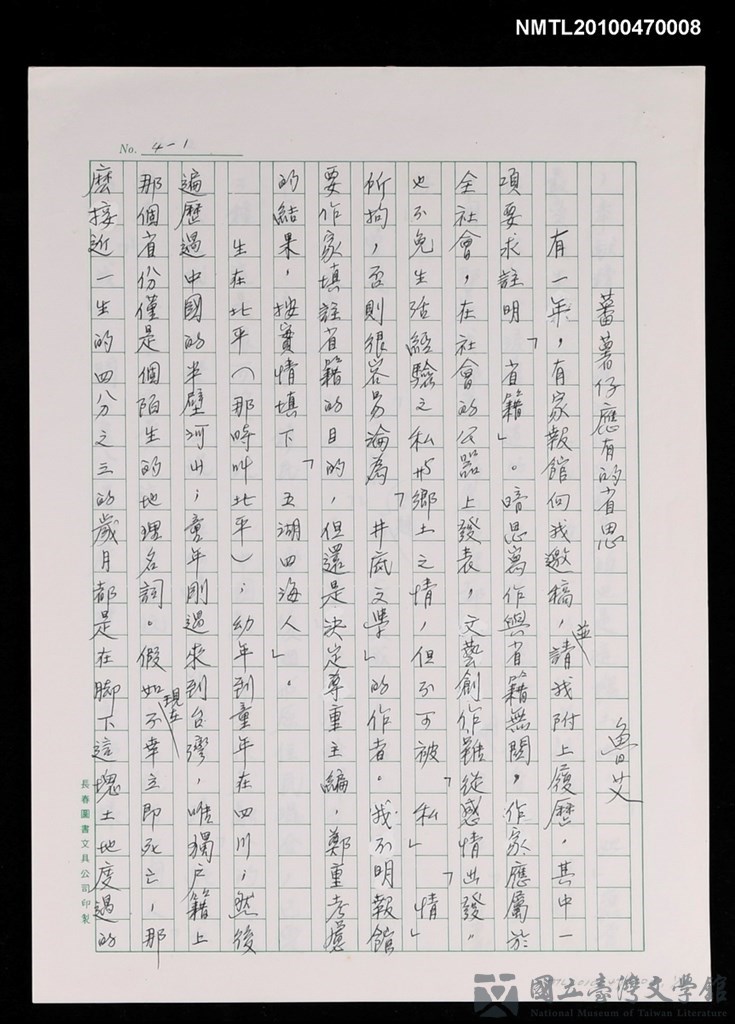 NMTL20100470008
No. 4-1
蕃薯仔應有的省思
魯艾
有一年，有家報館向我邀稿，並請我附上履歷，其中一
項要求註明「省籍」。暗思寫作與省籍無關，作家應屬於
全社會，在社會的公器上發表，文藝創作雖從感情出發，
也不免生活經驗之私與鄉土之情，但不可被「私」「情」
所拘，否則很容易淪為「井底文學」的作者。我不明報館
要作家填註省籍的目的，但還是決定尊重主編，鄭重考慮
的結果，按實情填下「五湖四海人」。
生在北平（那時叫北平）；幼年到童年在四川；然後
遍歷過中國的半壁河山；童年剛過來到台灣，唯獨戶籍上
那個省份僅是個陌生的地理名詞。假如現在不幸立即死亡，那
麼接近一生的四分之三的歲月都是在腳下這塊土地度過的
長春圖書文具公司印製
國立臺灣文學館
National Museum of Taiwan Literature